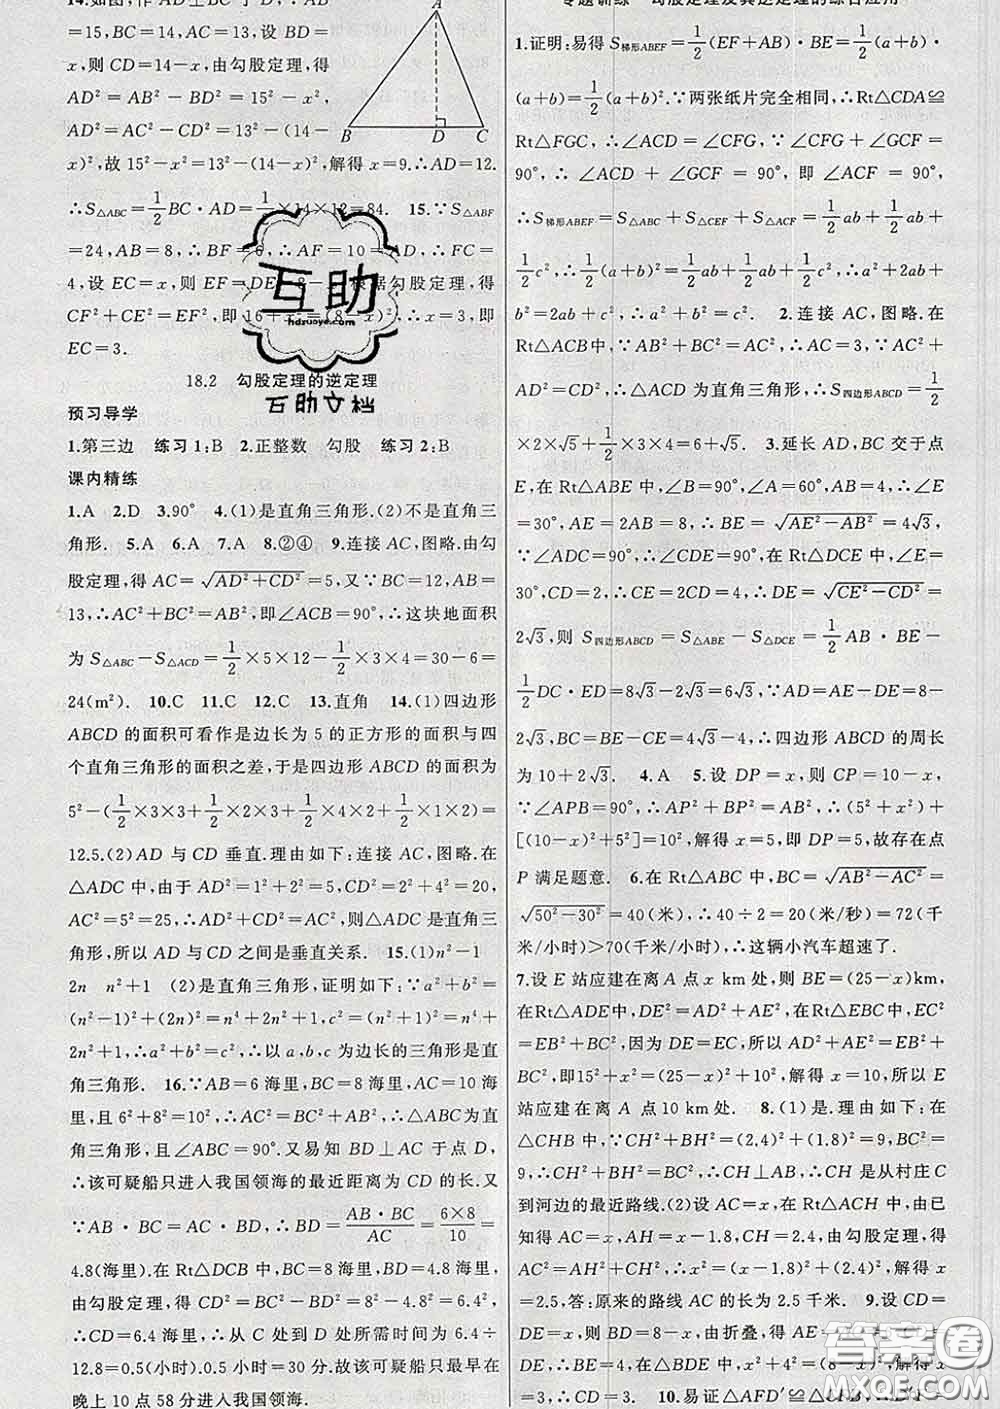 14.如图,作 AD⊥BC 于 D,AB
=15,BC=14,AC=13,设 BD=
x,则 CD=14-x,由勾股定理,得
AD²=AB²-BD²=15²-x²,
AD²=AC²-CD²=13²-(14-
x)²,故 15²-x²=13²-(14-x)²,解得 x=9.∴AD=12.
A
B D C
∴S△ABC=1/2 BC·AD=1/2×14×12=84. 15.∵S△ABF
=24,AB=8,∴BF=6,∴AF=10=AD,∴FC=
4,设 EC=x,则 EF=DE=8-x,根据勾股定理,得
CF²+CE²=EF²,即 16+x²=(8-x)²,∴x=3,即
EC=3.
互助
hdzuoye.com
互助文档
18.2 勾股定理的逆定理
预习导学
1.第三边 练习1:B 2.正整数 勾股 练习2:B
课内精练
1.A 2.D 3.90° 4.(1)是直角三角形.(2)不是直角三
角形. 5.A 6.A 7.A 8.②④ 9.连接 AC,图略.由勾
股定理,得 AC=√(AD²+CD²)=5,又∵BC=12,AB=
13,∴AC²+BC²=AB²,即∠ACB=90°,∴这块地面积
为 S△ABC-S△ACD=1/2×5×12-1/2×3×4=30-6=
24(m²). 10.C 11.C 12.C 13.直角 14.(1)四边形
ABCD 的面积可看作是边长为 5 的正方形的面积与四
个直角三角形的面积之差,于是四边形 ABCD 的面积为
5²-(1/2×3×3+1/2×2×3+1/2×4×2+1/2×1×2)=
12.5.(2)AD 与 CD 垂直.理由如下:连接 AC,图略.在
△ADC 中,由于 AD²=1²+2²=5,CD²=2²+4²=20,
AC²=5²=25,∴AD²+CD²=AC²,则△ADC 是直角三
角形,所以 AD 与 CD 之间是垂直关系. 15.(1)n²-1
2n n²+1 (2)是直角三角形,证明如下:∵a²+b²=
(n²-1)²+(2n)²=n⁴+2n²+1,c²=(n²+1)²=n⁴+
2n²+1,∴a²+b²=c²,∴以 a,b,c 为边长的三角形是直
角三角形. 16.∵AB=6 海里,BC=8 海里,AC=10 海
里,且 6²+8²=10²,∴BC²+AB²=AC²,∴△ABC 为直
角三角形,且∠ABC=90°.又易知 BD⊥AC 于点 D,
∴该可疑船只进入我国领海的最近距离为 CD 的长.又
∵AB·BC=AC·BD,∴BD=(AB·BC)/AC=(6×8)/10=
4.8(海里).在 Rt△DCB 中,BC=8 海里,BD=4.8 海里,
由勾股定理,得 CD²=BC²-BD²=8²-4.8²=6.4²,
∴CD=6.4 海里,∴从 C 处到 D 处所需时间为 6.4÷
12.8=0.5(小时).0.5 小时=30 分.故该可疑船只最早在
晚上 10 点 58 分进入我国领海.
专题训练 勾股定理及其逆定理的综合应用
1.证明:易得 S梯形ABEF=1/2(EF+AB)·BE=1/2(a+b)·
(a+b)=1/2(a+b)².∵两张纸片完全相同,∴Rt△CDA≌
Rt△FGC,∴∠ACD=∠CFG,∵∠CFG+∠GCF=
90°,∴∠ACD+∠GCF=90°,即∠ACF=90°,
∴S梯形ABEF=S△ABC+S△CEF+S△ACF=1/2ab+1/2ab+
1/2c²,∴1/2(a+b)²=1/2ab+1/2ab+1/2c²,∴a²+2ab+
b²=2ab+c²,∴a²+b²=c². 2.连接 AC,图略.在
Rt△ABC 中,∵AC²=AB²+BC²=5,∵AC²+
AD²=CD²,∴△ACD 为直角三角形,∴S四边形ABCD=1/2
×2×√5+1/2×3×4=6+√5. 3.延长 AD,BC 交于点
E,在 Rt△ABE 中,∠B=90°,∠A=60°,AB=4,∴∠E
=30°,AE=2AB=8,∴BE=√(AE²-AB²)=4√3,
∵∠ADC=90°,∴∠CDE=90°,在 Rt△DCE 中,∠E=
30°,CD=2,∴CE=2CD=4,∴DE=√(CE²-CD²)=
2√3,则 S四边形ABCD=S△ABE-S△DCE=1/2AB·BE-
1/2DC·ED=8√3-2√3=6√3,∵AD=AE-DE=8-
2√3,BC=BE-CE=4√3-4,∴四边形 ABCD 的周长
为 10+2√3. 4.A 5.设 DP=x,则 CP=10-x,
∵∠APB=90°,∴AP²+BP²=AB²,∴(5²+x²)+
[(10-x)²+5²]=10²,解得 x=5,即 DP=5,故存在点
P 满足题意. 6.在 Rt△ABC 中,BC=√(AB²-AC²)
=√(50²-30²)=40(米),∴40÷2=20(米/秒)=72(千
米/小时)>70(千米/小时),∴这辆小汽车超速了.
7.设 E 站应建在离 A 点 x km 处,则 BE=(25-x)km,
在Rt△ADE 中,DE²=AD²+AE²,在 Rt△BCE 中,
EC²=EB²+BC²,因为 DE=EC,所以 AD²+AE²=EB²+
BC²,即15²+x²=(25-x)²+10²,解得 x=10,所以 E
站应建在离 A 点10 km处. 8.(1)是.理由如下:在
△CHB 中,∵CH²+BH²=(2.4)²+(1.8)²=9,BC²=
9,∴CH²+BH²=BC²,∴CH⊥AB,∴CH 是从村庄 C
到河边的最近路线.(2)设 AC=x,在 Rt△ACH 中,由已
知得 AC=x,AH=x-1.8,CH=2.4,由勾股定理,得
AC²=AH²+CH²,∴x²=(x-1.8)²+(2.4)²,解得 x
=2.5,答:原来的路线 AC 的长为 2.5 千米. 9.设 CD=
DE=x,则 BD=8-x,由折叠,得 AE=
DE=x,∴在△BDE 中,x²+4²=(8-x)²,解得 x
=3,∴CD=3. 10.易证△AFD′≌△CFB,∴D′F
答案圈
MXQE.COM